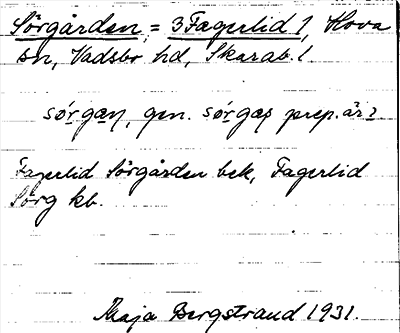 Sörgården, = 3 Fagerlid 1, Hova
sn, Vadsbo hd, Skarab. l.
sórgaŋ, gen. sórgas prep. är?
Fagerlid Sörgården bek, Fagerlid
Sörg kb.
Maja Bergstrand 1931.